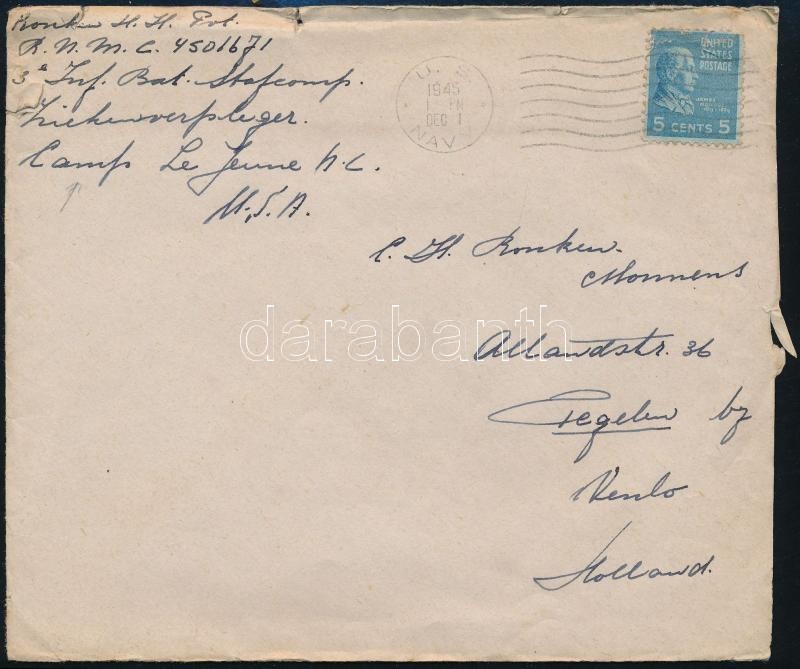 Ronken H. H. Pvt.
R. N. M. C. 4501671
3e Inf. Bat. Stafcomp.
Ziekenverpleger.
Camp Le Jeune N.C.
U.S.A.
U. S.
1945
1 PM
DEC 1
NAVY
UNITED
STATES
POSTAGE
JAMES
MONROE
5 CENTS 5
C. H. Ronken.
Monnens
Allandstr. 36
Tegelen by
Venlo
Holland.
darabanth